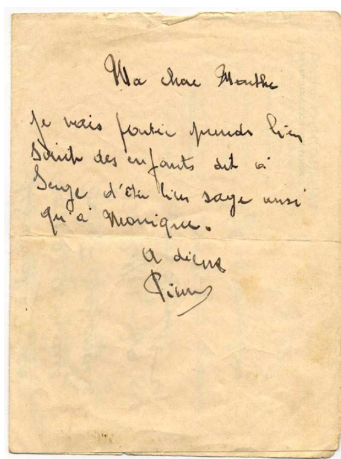 Ma chere Marthe
je vais partir prends bien
soin des enfants dit à
Serge d'être bien sage ainsi
qu'à Monique.
A dieu
Pierre